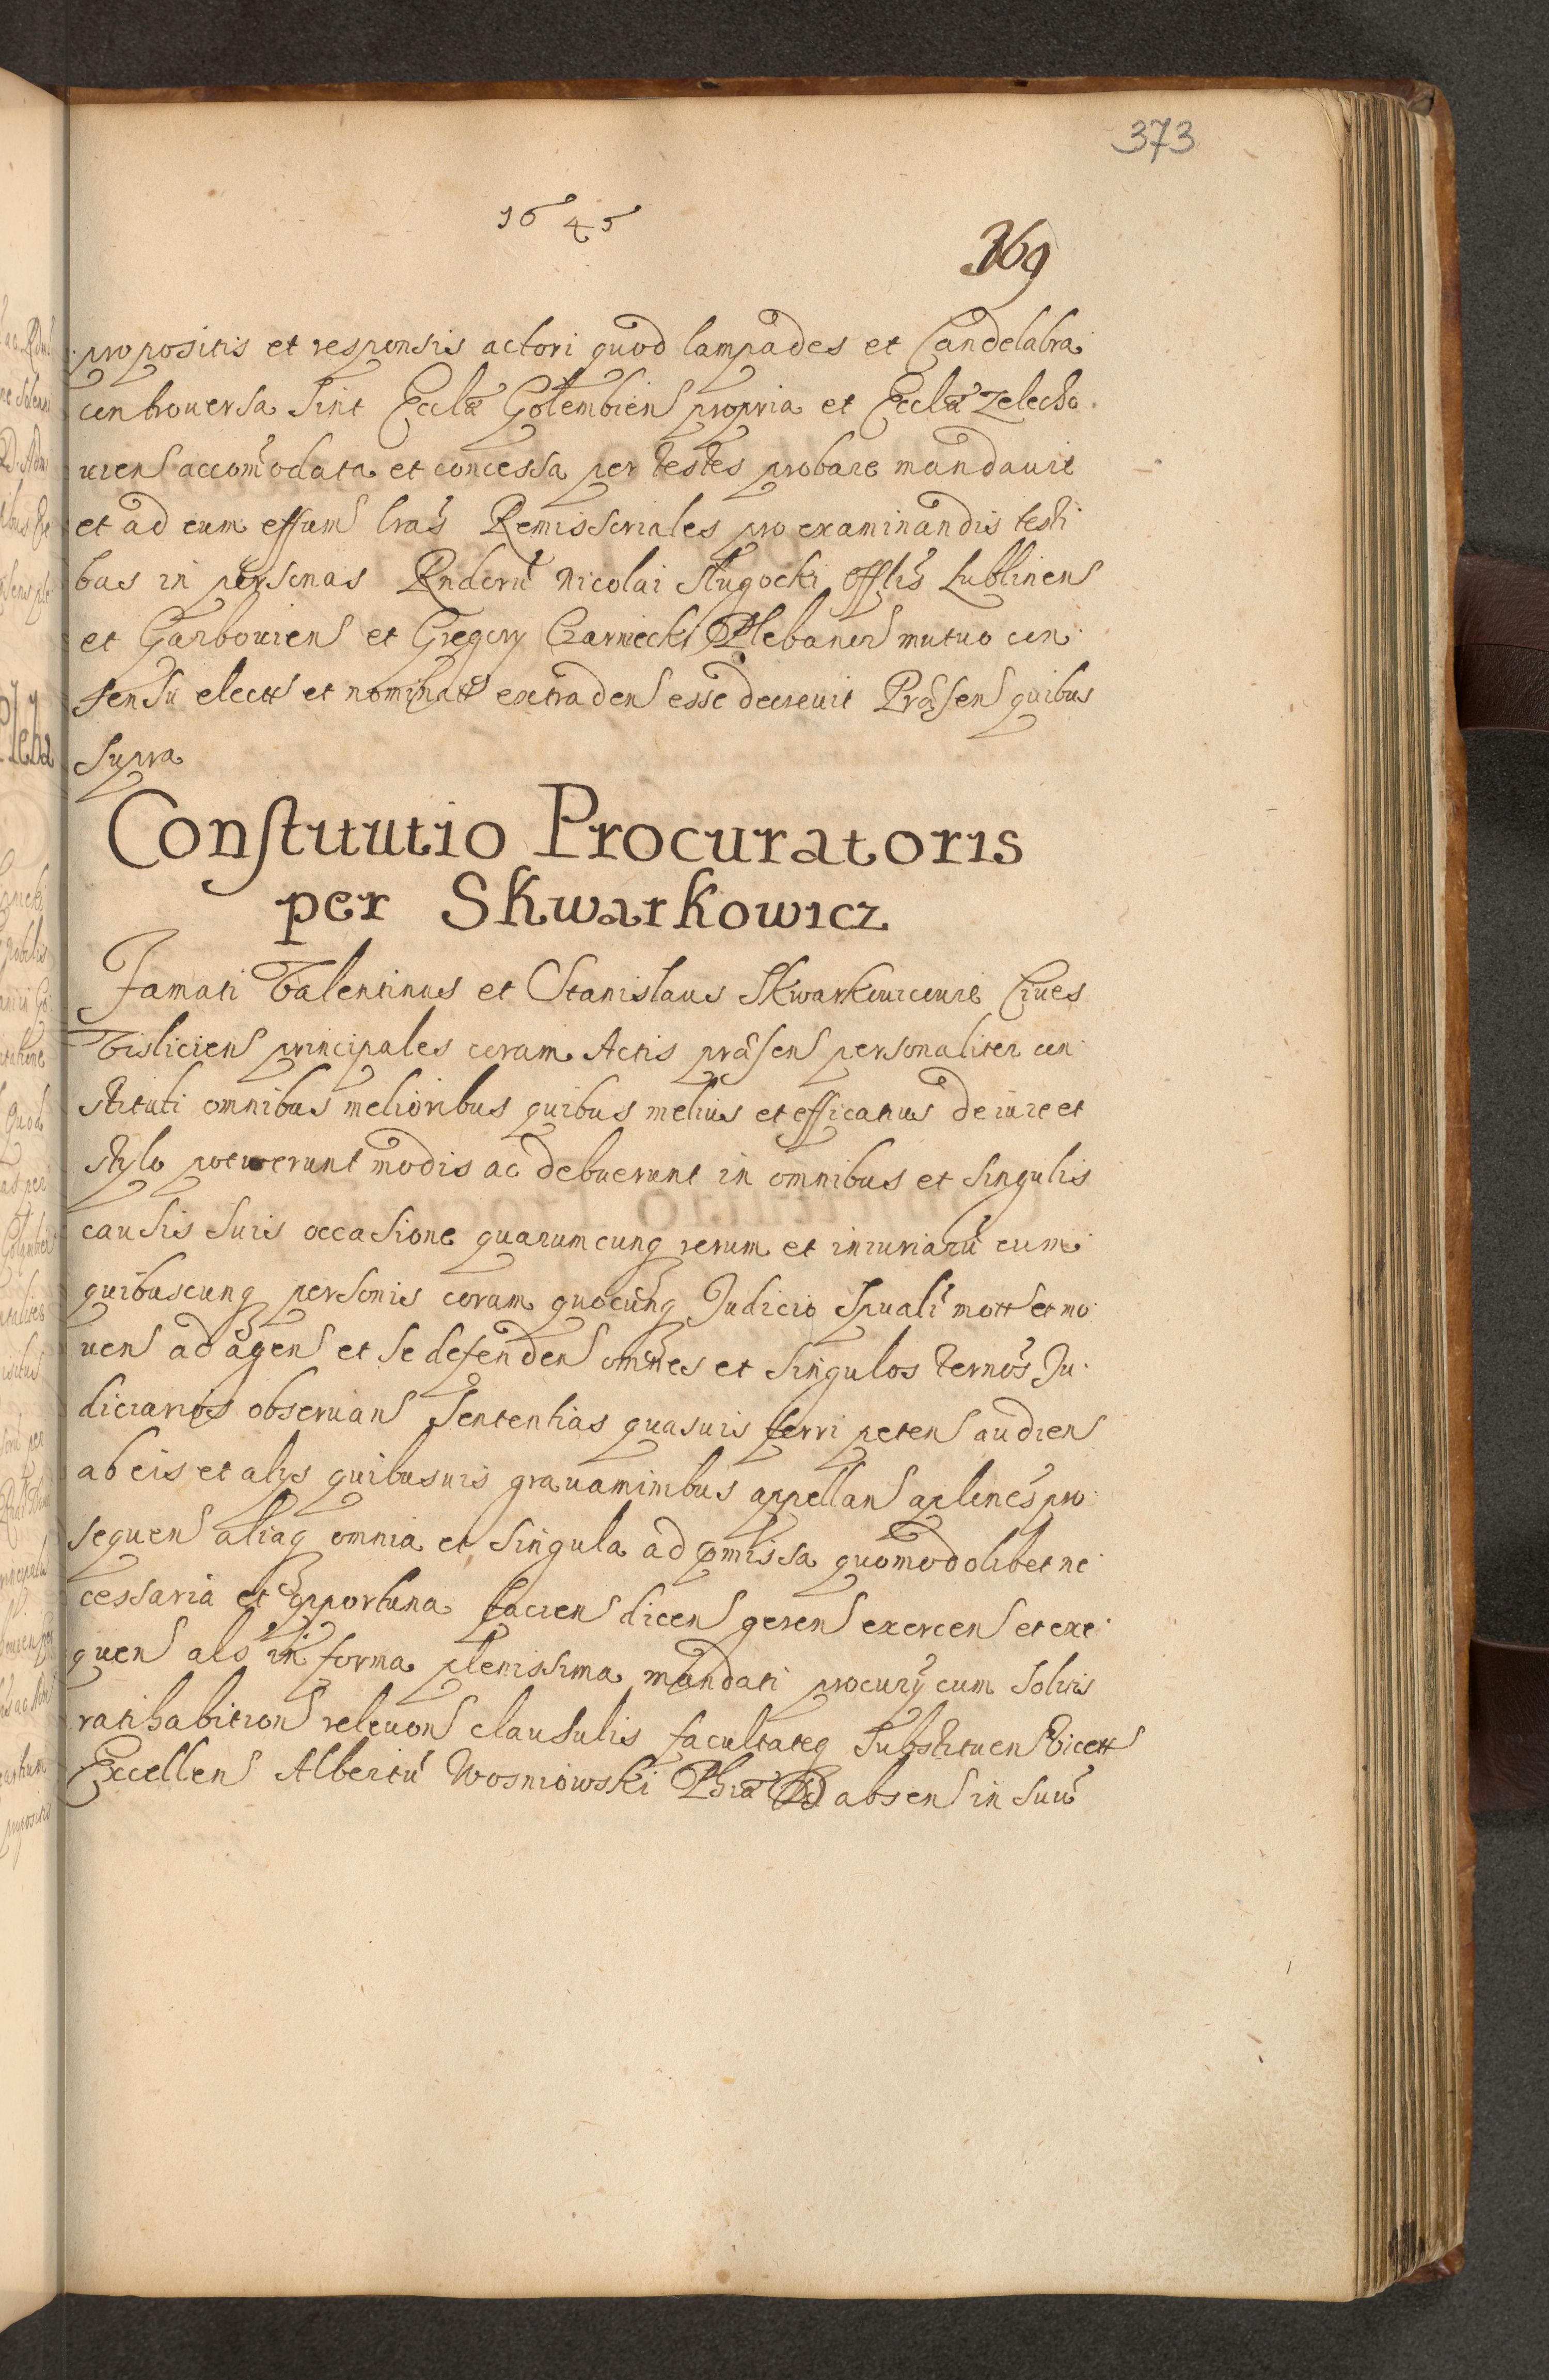 373
1645
369
propositis et responsis actori quod lampades et Candelabra
controuersa sint Eccłæ Gołembien propria et Eccłæ Zelecho
uien accom̃odata et concessa per testes probare mandauit
et ad eum effum lras Remissoriales pro examinandis testi
bus in personas Rndorũ Nicolai Sługocki Offlis Lublinen
et Garbouien et Gregory Czarniecki Plebanor mutuo con
sensu electt et nominatt extraden esse decreuit Præsen quibus
supra
Constitutio Procuratoris
per Skwarkowicz
Famati Valentinus et Stanislaus Skwarkouicouie Ciues
Visliciens principales coram Actis præsen personaliter con
stituti omnibus melioribus quibus melius et efficatius de iure et
stylo potuerunt modis ac debuerunt in omnibus et singulis
causis suis occasione quarumcunq rerum et iniuriarũ cum
quibuscunq personis coram quocunq Judicio Spuali mott et mo
uen ad agen et se defenden omnes et singulos ternos Ju
diciarios obseruan Sententias quasuis ferri peten audien
ab eis et alys quibusuis grauaminibus appellan apllnes pro
sequen aliaq omnia et singula ad pmissa quomodolibet ne
cessaria et opportuna facien dicen geren exercen et exe
quen als in forma plenissima mandati procury cum solitis
ratihabition releuon clausulis facultateq substituen Vicett
Excellen Albertũ Wosniowski Phiæ D absen in suũ